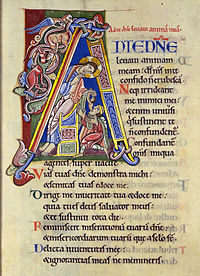 Ad te dñe leuaui animā meā:
A D TE DÑE
leuaui animam
meam: deus ms in te
confido n erubescā
Neq; irrideant
me inimici mei:
etenim uniuersi
q sustinent te n
confundent
Confundantur
oms iniqua
agentes: superuacue
Vias tuas dñe demonstra michi:
& semitas tuas edoce me.
Dirige me in ueritate tua & doce me:
quia tu es deus saluator meus
& te sustinui tota die.
Reminiscere miserationū tuarū dñe
& misericordiarum tuarū que a sclo sē.
Delicta iuuentutis mee:
& ignorantias meas ne memineris: